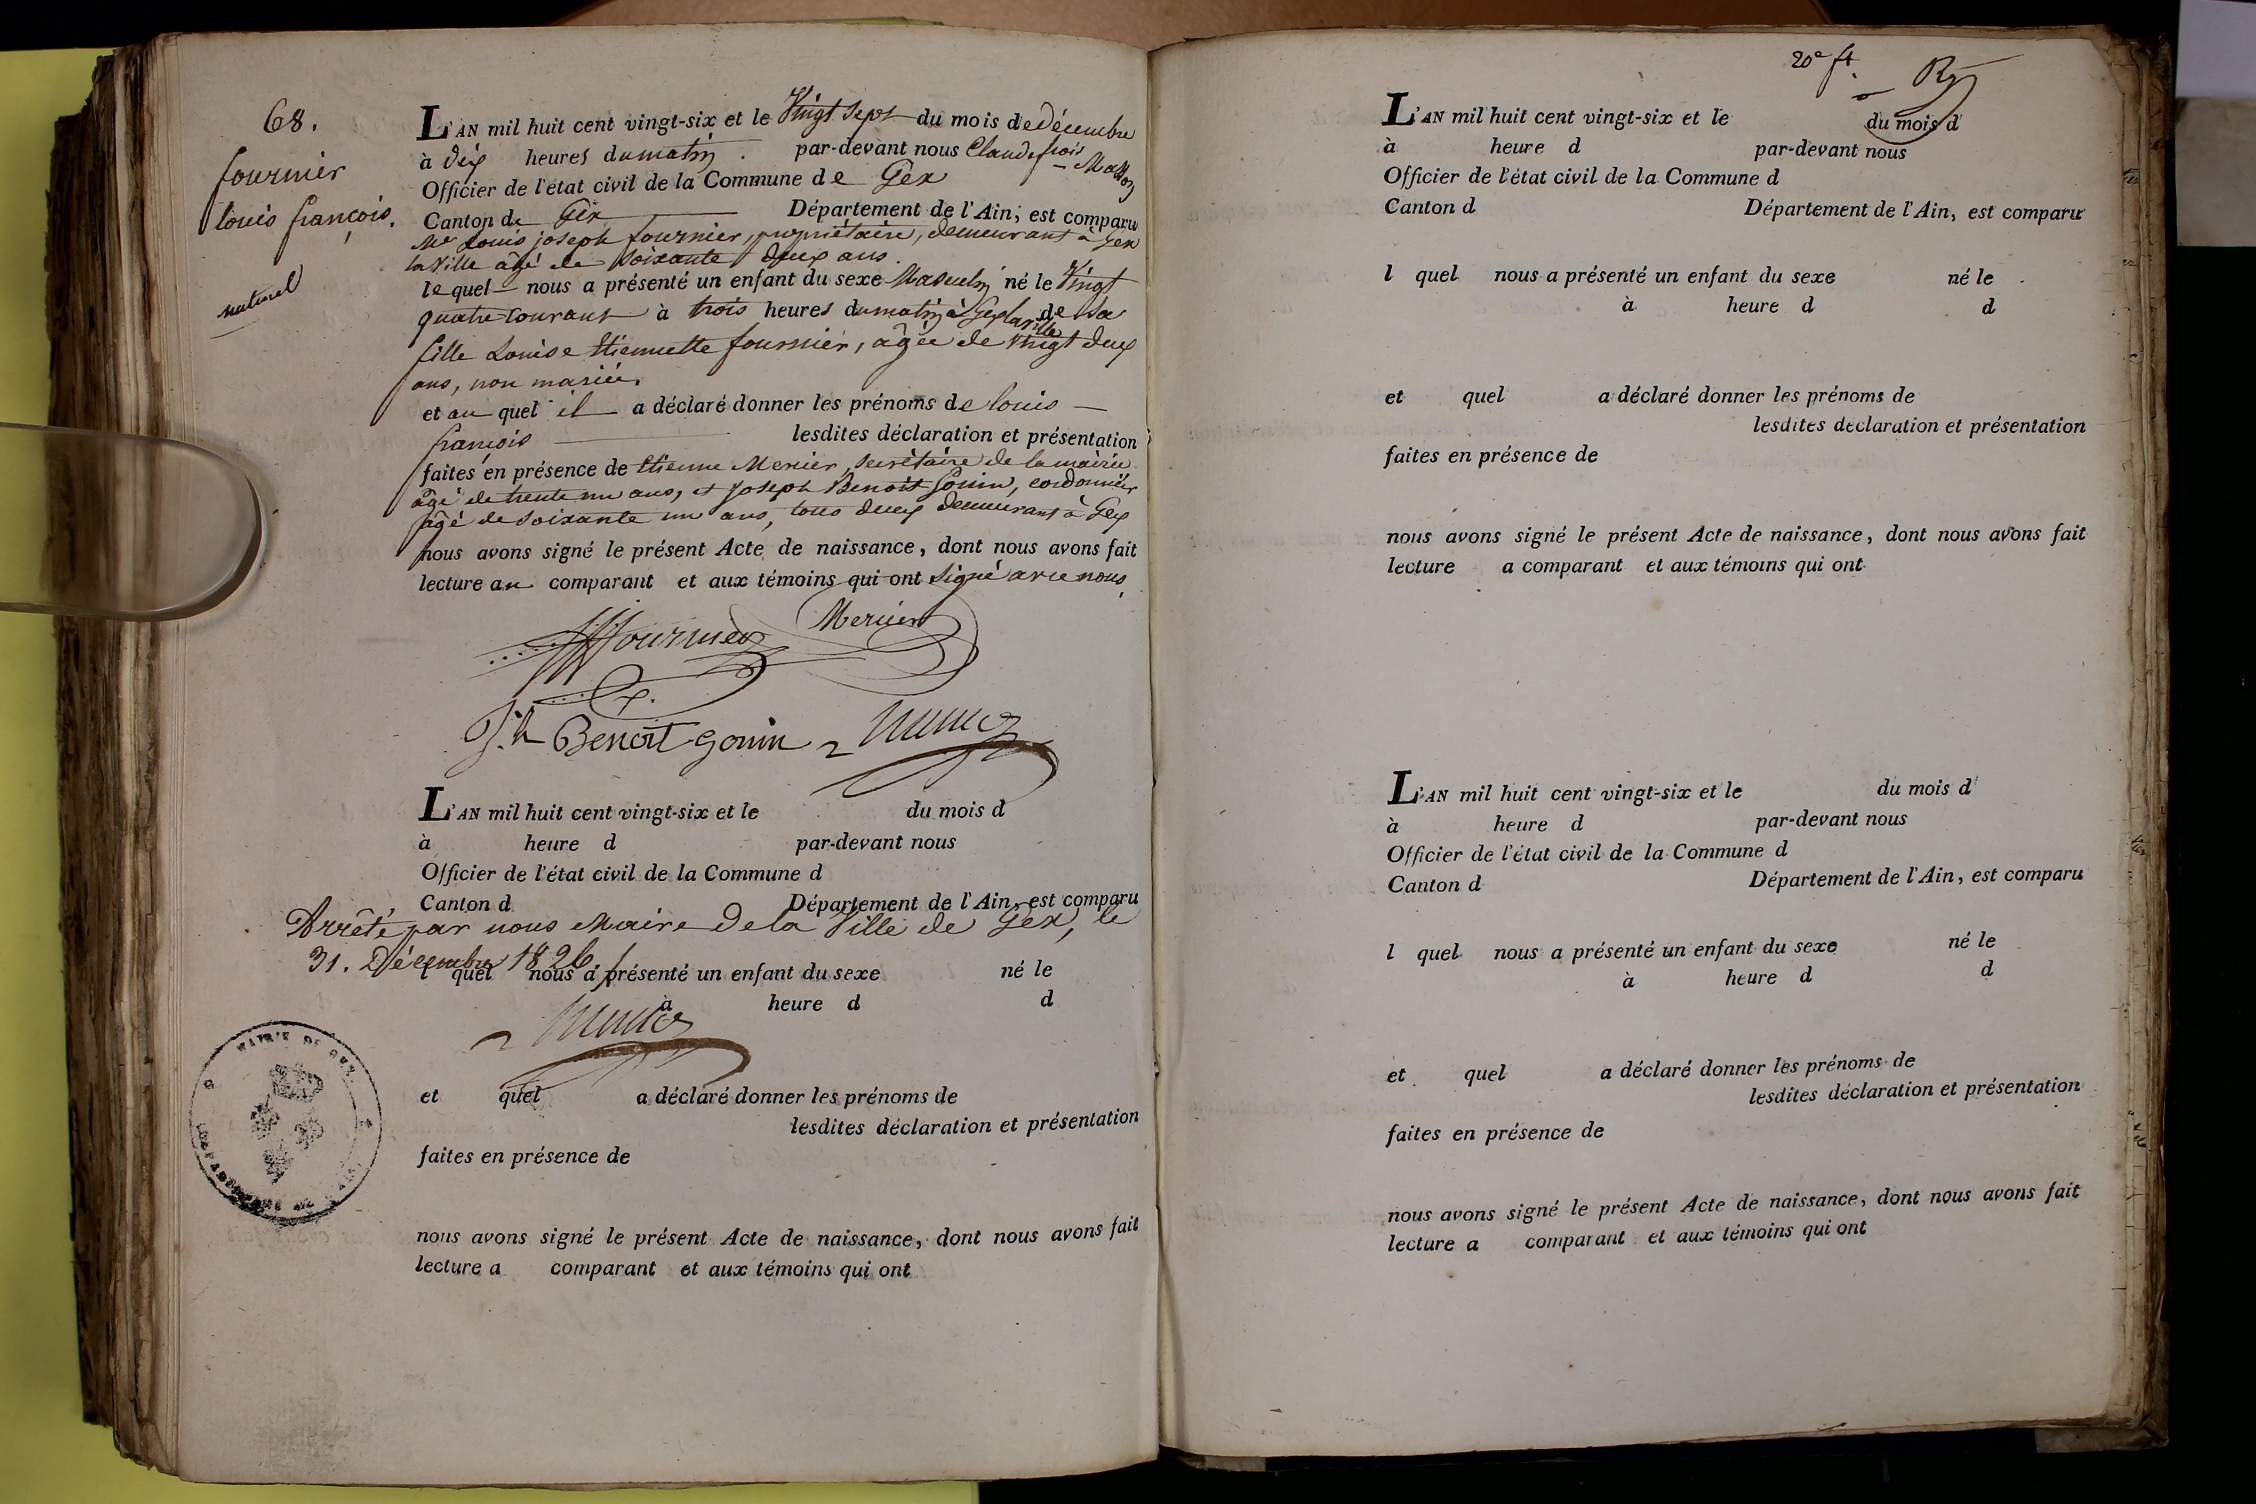 68.
fournier
louis françois.
naturel
L'AN mil huit cent vingt-six et le Vingt sept du mois de décembre
à dix heures du matin. par-devant nous Claude frois
Officier de l'état civil de la Commune de Gex
Canton de Gex Département de l'Ain, est comparu
Mr Louis joseph fournier, propriétaire, demeurant à Gex
la Ville âgé de soixante deux ans.
lequel nous a présenté un enfant du sexe Masculin né le Vingt
quatre courant à trois heures du matin à Gex la ville de sa
fille Louise Etiennette fournier, âgée de vingt deux
ans, non mariée.
et au quel il a déclaré donner les prénoms de louis
françois lesdites déclaration et présentation
faites en présence de Etienne Mercier, secrétaire de la mairie
âgé de trente un ans, et Joseph Benoit Gouin, cordonnier
âgé de soixante un ans, tous deux demeurant à Gex
nous avons signé le présent Acte de naissance, dont nous avons fait
lecture au comparant et aux témoins qui ont signé avec nous,
fournier Mercier
Jh Benoit gouin
L'AN mil huit cent vingt-six et le du mois d
à heure d par-devant nous
Officier de l'état civil de la Commune d
Canton d Département de l'Ain, est comparu
Arrêté par nous Maire de la Ville de Gex, le
31. Décembre 1826
l quel nous a présenté un enfant du sexe né le
à heure d d
et quel a déclaré donner les prénoms de
lesdites déclaration et présentation
faites en présence de
nous avons signé le présent Acte de naissance, dont nous avons fait
lecture a comparant et aux témoins qui ont
MAIRIE DE GEX
20e ft.
L'AN mil huit cent vingt-six et le du mois d
à heure d par-devant nous
Officier de l'état civil de la Commune d
Canton d Département de l'Ain, est comparu
l quel nous a présenté un enfant du sexe né le
à heure d d
et quel a déclaré donner les prénoms de
lesdites déclaration et présentation
faites en présence de
nous avons signé le présent Acte de naissance, dont nous avons fait
lecture a comparant et aux témoins qui ont
L'AN mil huit cent vingt-six et le du mois d
à heure d par-devant nous
Officier de l'état civil de la Commune d
Canton d Département de l'Ain, est comparu
l quel nous a présenté un enfant du sexe né le
à heure d d
et quel a déclaré donner les prénoms de
lesdites déclaration et présentation
faites en présence de
nous avons signé le présent Acte de naissance, dont nous avons fait
lecture a comparant et aux témoins qui ont